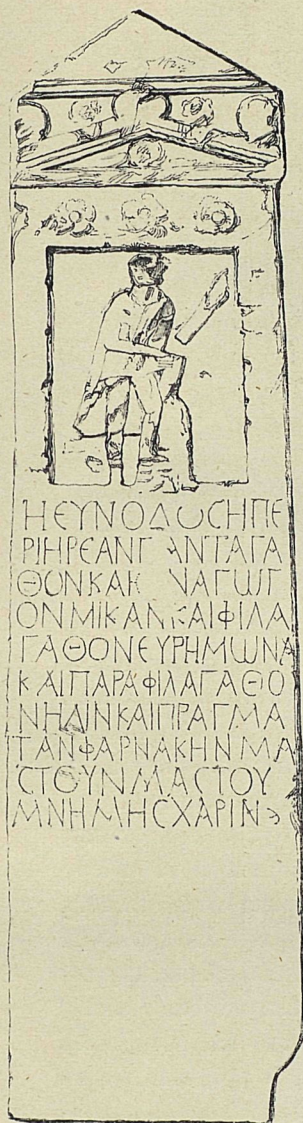 ΗΕΥΝΟΔΟCΗΠΕ
ΡΙΗΡΕΑΝΓ ΑΝΤΑΓΑ
ΘΟΝΚΑΚ ΝΑΓωΓ
ΟΝΜΙΚΑΝ ΚΑΙΦΙΛΑ
ΓΑΘΟΝΕΥΡΗΜωΝΑ
ΚΑΙΠΑΡΑΦΙΛΑΓΑΘΟ
ΝΗΔΙΝΚΑΙΠΡΑΓΜΑ
ΤΑΝΦΑΡΝΑΚΗΝΜΑ
CΤΟΥΝΜΑCΤΟΥ
ΜΝΗΜΗCΧΑΡΙΝ